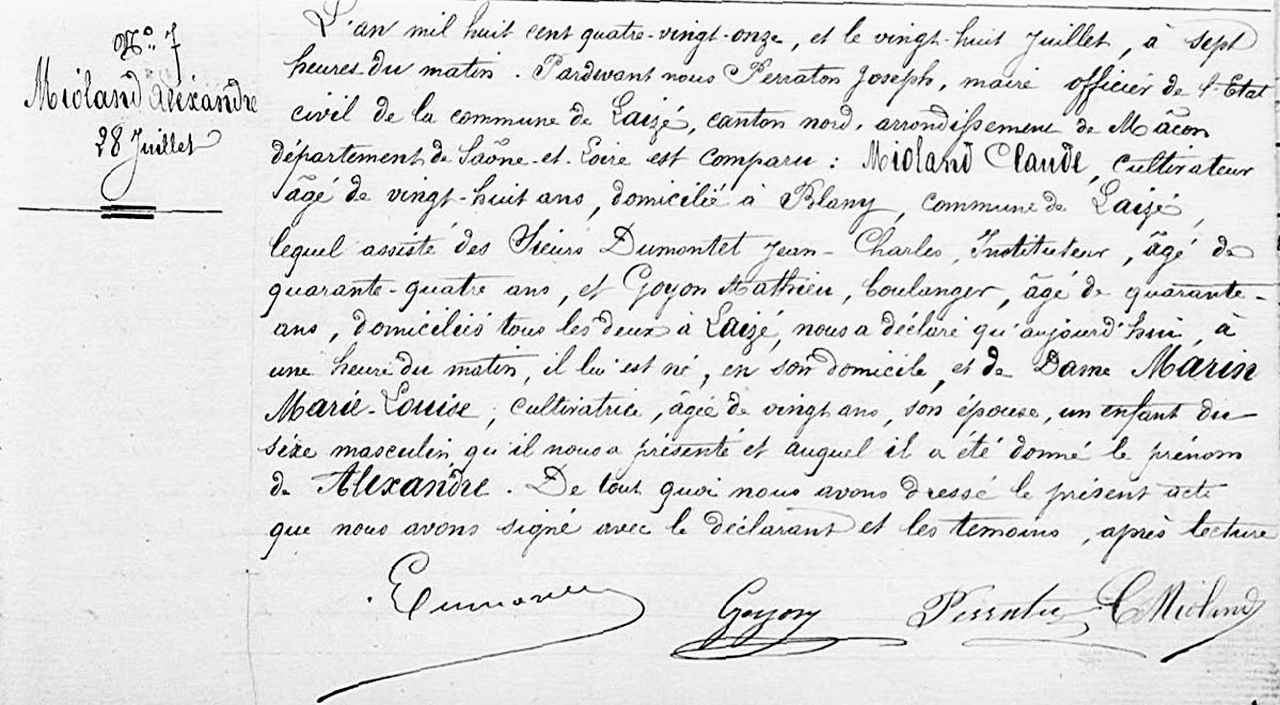 N° 7
Mioland Alexandre
28 Juillet
L'an mil huit cent quatre-vingt-onze, et le vingt-huit Juillet, à sept
heures du matin. Pardevant nous Perraton Joseph, maire officier de l'Etat
civil de la commune de Laizé, canton nord, arrondissement de Mâcon
département de Saône-et-Loire est comparu : Mioland Claude, cultivateur
âgé de vingt-huit ans, domicilié à Blany, commune de Laizé,
lequel assisté des Sieurs Dumontet Jean-Charles, Instituteur, âgé de
quarante-quatre ans, et Goyon Mathieu, boulanger, âgé de quarante-
ans, domiciliés tous les deux à Laizé, nous a déclaré qu'aujourd'hui, à
une heure du matin, il lui est né, en son domicile, et de Dame Marin
Marie-Louise, cultivatrice, âgée de vingt ans, son épouse, un enfant du
sexe masculin qu'il nous a présenté et auquel il a été donné le prénom
de Alexandre. De tout quoi nous avons dressé le présent acte
que nous avons signé avec le déclarant et les témoins, après lecture
Goyon Perraton C Mioland